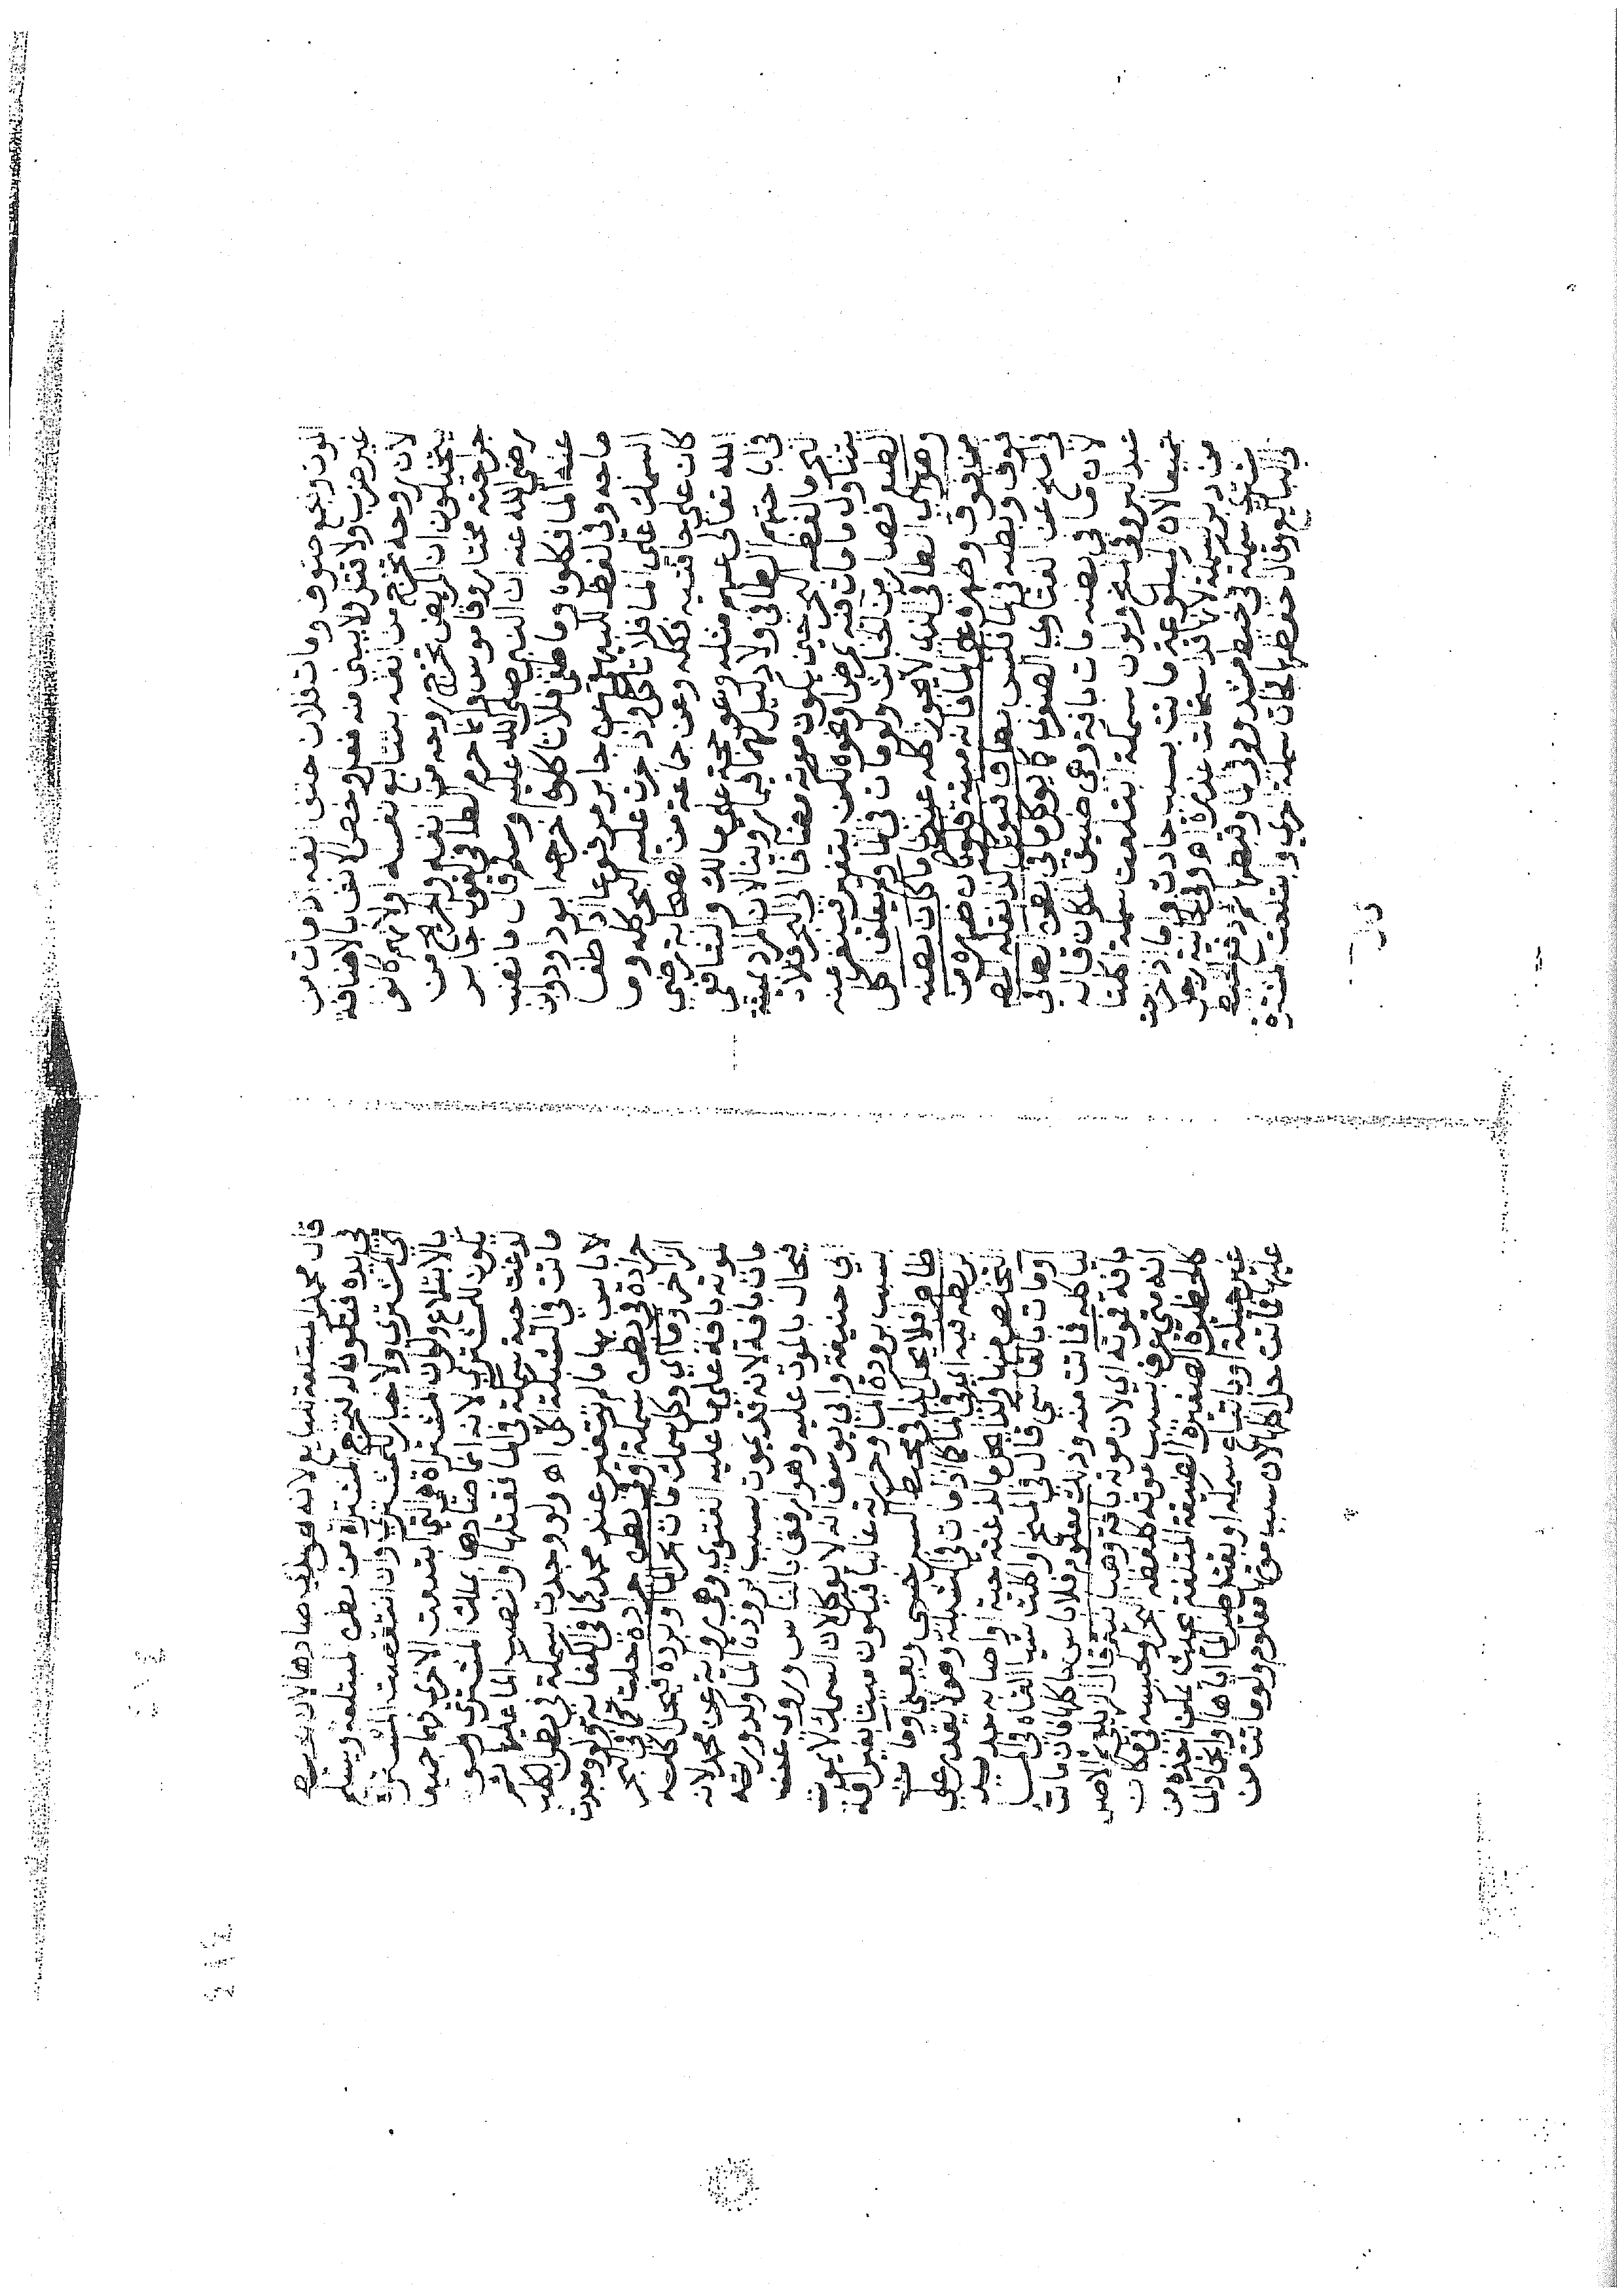 لون وبخع حتوف ومات فلان حتف انفه اذا مات من
غير ضرب ولا قتل ولا يبنى منه فعل وخص الانف بالاضافة
لان روحه تخرج من انفه بتتابع نفسه او لانهم كانوا
يتخيلون ان المريض تخرج روحه من انفه والجريح من
جراحته مختار وقاموس وانما حرم الطافي لقول جابر
رضي الله عنه ان النبي صلى الله عليه وسلم قال ما نضب
عنه الما فكلوه وما طفى فلا تاكلوا اخرجه ابو داود وابن
ماجه وفي لفظ للبيهقي عن جابر مرفوعا اذا طفا
السمك على الما فلا تاكل واذا جزر عليه البحر فكله وما
كان على حافتيه فكله وعن جماعة من الصحابة رضي
الله تعالى عنهم مثله وهو حجة على مالك والشافعي
في اباحتهم الطافي ولا دليل لهما فيما روينا لان المراد بميتة
البحر ما لفظه البحر حتى يكون موته مضافا الى البحر فلا
يتناول ما مات فيه بمرض ونحوه لكن يتغير فيتنفر منه
الطبع فصار من الخبائث ولو مات في الما ولم يعلق اكل
وهو اي الطافي الذي لا يجوز اكله عندنا ما كان بطنه
من فوق وظهره على الما فانه ميتة فلو كان ظهره من
فوق وبطنه في الما فليس بطاف فيوكل كذا نقله المص
في المنح عن الفتاوي الصغرى كما يوكل ما في بطن الطافي
لان ما في بطنه مات بافة وهي ضيق المكان قال
عبد البر وفي المنح ولو ان سمكة ابتلعت سمكة اكلتا
جميعا لان المبلوعة ماتت بسبب حادث واما اذا خرجت
من دبر سمكة لا لانها قد استحالت عذرة اه وفي الخانية رجل
اشترى سمكة في خيط مشدود في الما وقبضها ثم دفع الخيط
الى البايع وقال احفظها فجات سمكة اخرى وابتلعت المشتراة
قال محمد المبتلعة للبايع لانه هو الذي صادها لان الخيط
في يده فتكون له فتخرج المشتراة من بطن المبتلعة ويسلم
الى المشتري ولا خيار للمشتري وان انتقصت المشتراة
بالابتلاع ولو ان المشتراة هي التي ابتلعت الاخرى فهما جميعا
يكون للمشتري لانه انما صادها بملك المشتري ولو
لدغت حية سمكة في الما فقتلها او انضب الما عليها او
ماتت في الشبكة اكل اه ولو وجدت سمكة في بطن الكلب
لا باس بها ما لم تتغير عند محمد كما في الكفاية ولو وجدت
جرادة في بطن سمكة او في بطن جرادة حلت كما في البحر
الزاخر وما اي وكل سمك مات بحر الما او برده فيحل اكله
لموته بافة على ما عليه الفتوى وهي رواية عن محمد لانه
مات بافة لانه قد يموت بسبب برودة الما وكدورته
فيحال بالموت عليه وهو ارفق بالناس وروي عن
ابي حنيفة وابي يوسف انه لا يوكل لان السمك لا يموت
بسبب برودة الما وحرارته غالبا فيكون ميتا بغير افة
ظاهرا فلا يحل كذا في محيط السرخسي وبعض وما مات
بربطه فيه اي في الما كما اذا مات في الشبكة وهو لا يقدر على
التخلص منها وكذا يحل ما لدغته حية او اصابه حديد
او مات بالقاء شي قال في المنح او اكلت شيا القاه في الما
لياكله فماتت منه وذلك معلوم فلا باس باكلها فان مات
بافة فموته اي لان موته بافة وهذا شرط قال الزيلعي والاصل
انه متى عرف بسبب موته كلفظه البحر وحبسه في مكان
كالحظيرة الصغيرة الضيقة المتلفة بحيث يمكن اخذه من
غير حيلة او بابتلاع سمكة او بقتل طير الما اياها او انجماد الما
عليها فماتت حل اكلها لان سبب موتها معلوم ولو ماتت من